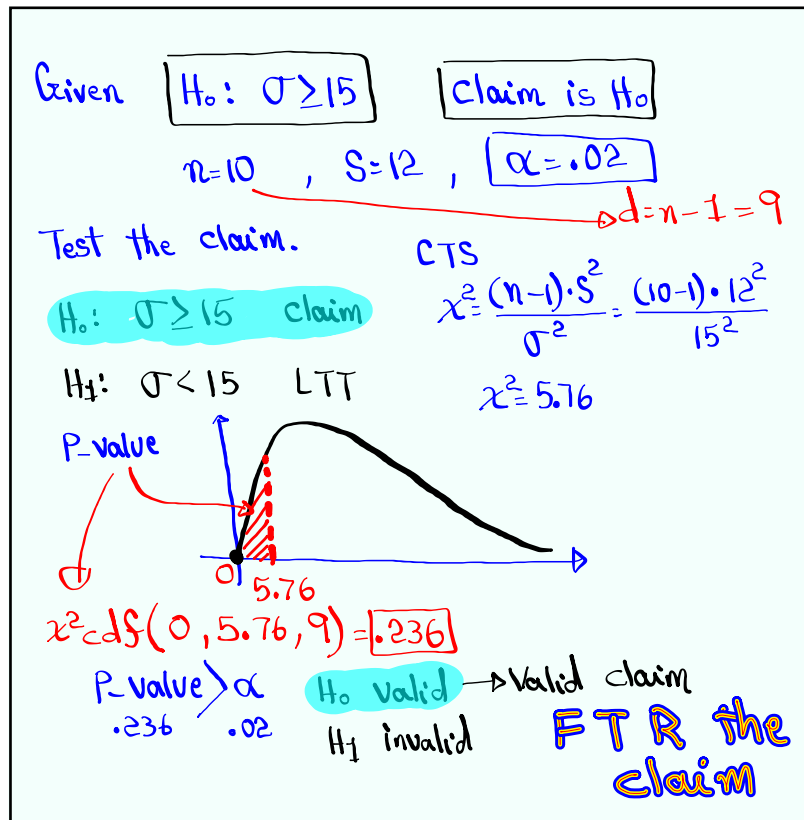 Given H₀: σ≥15 Claim is H₀
n=10 , S=12 , α=.02
d=n-1=9
Test the claim.
CTS
H₀: σ≥15 claim
χ²=(n-1)·S²/σ²=(10-1)·12²/15²
H1: σ<15 LTT
χ²=5.76
P-value
0 5.76
χ²cdf(0,5.76,9)=.236
P-value>α H₀ valid → Valid claim
.236 .02
H1 invalid
FTR the
claim